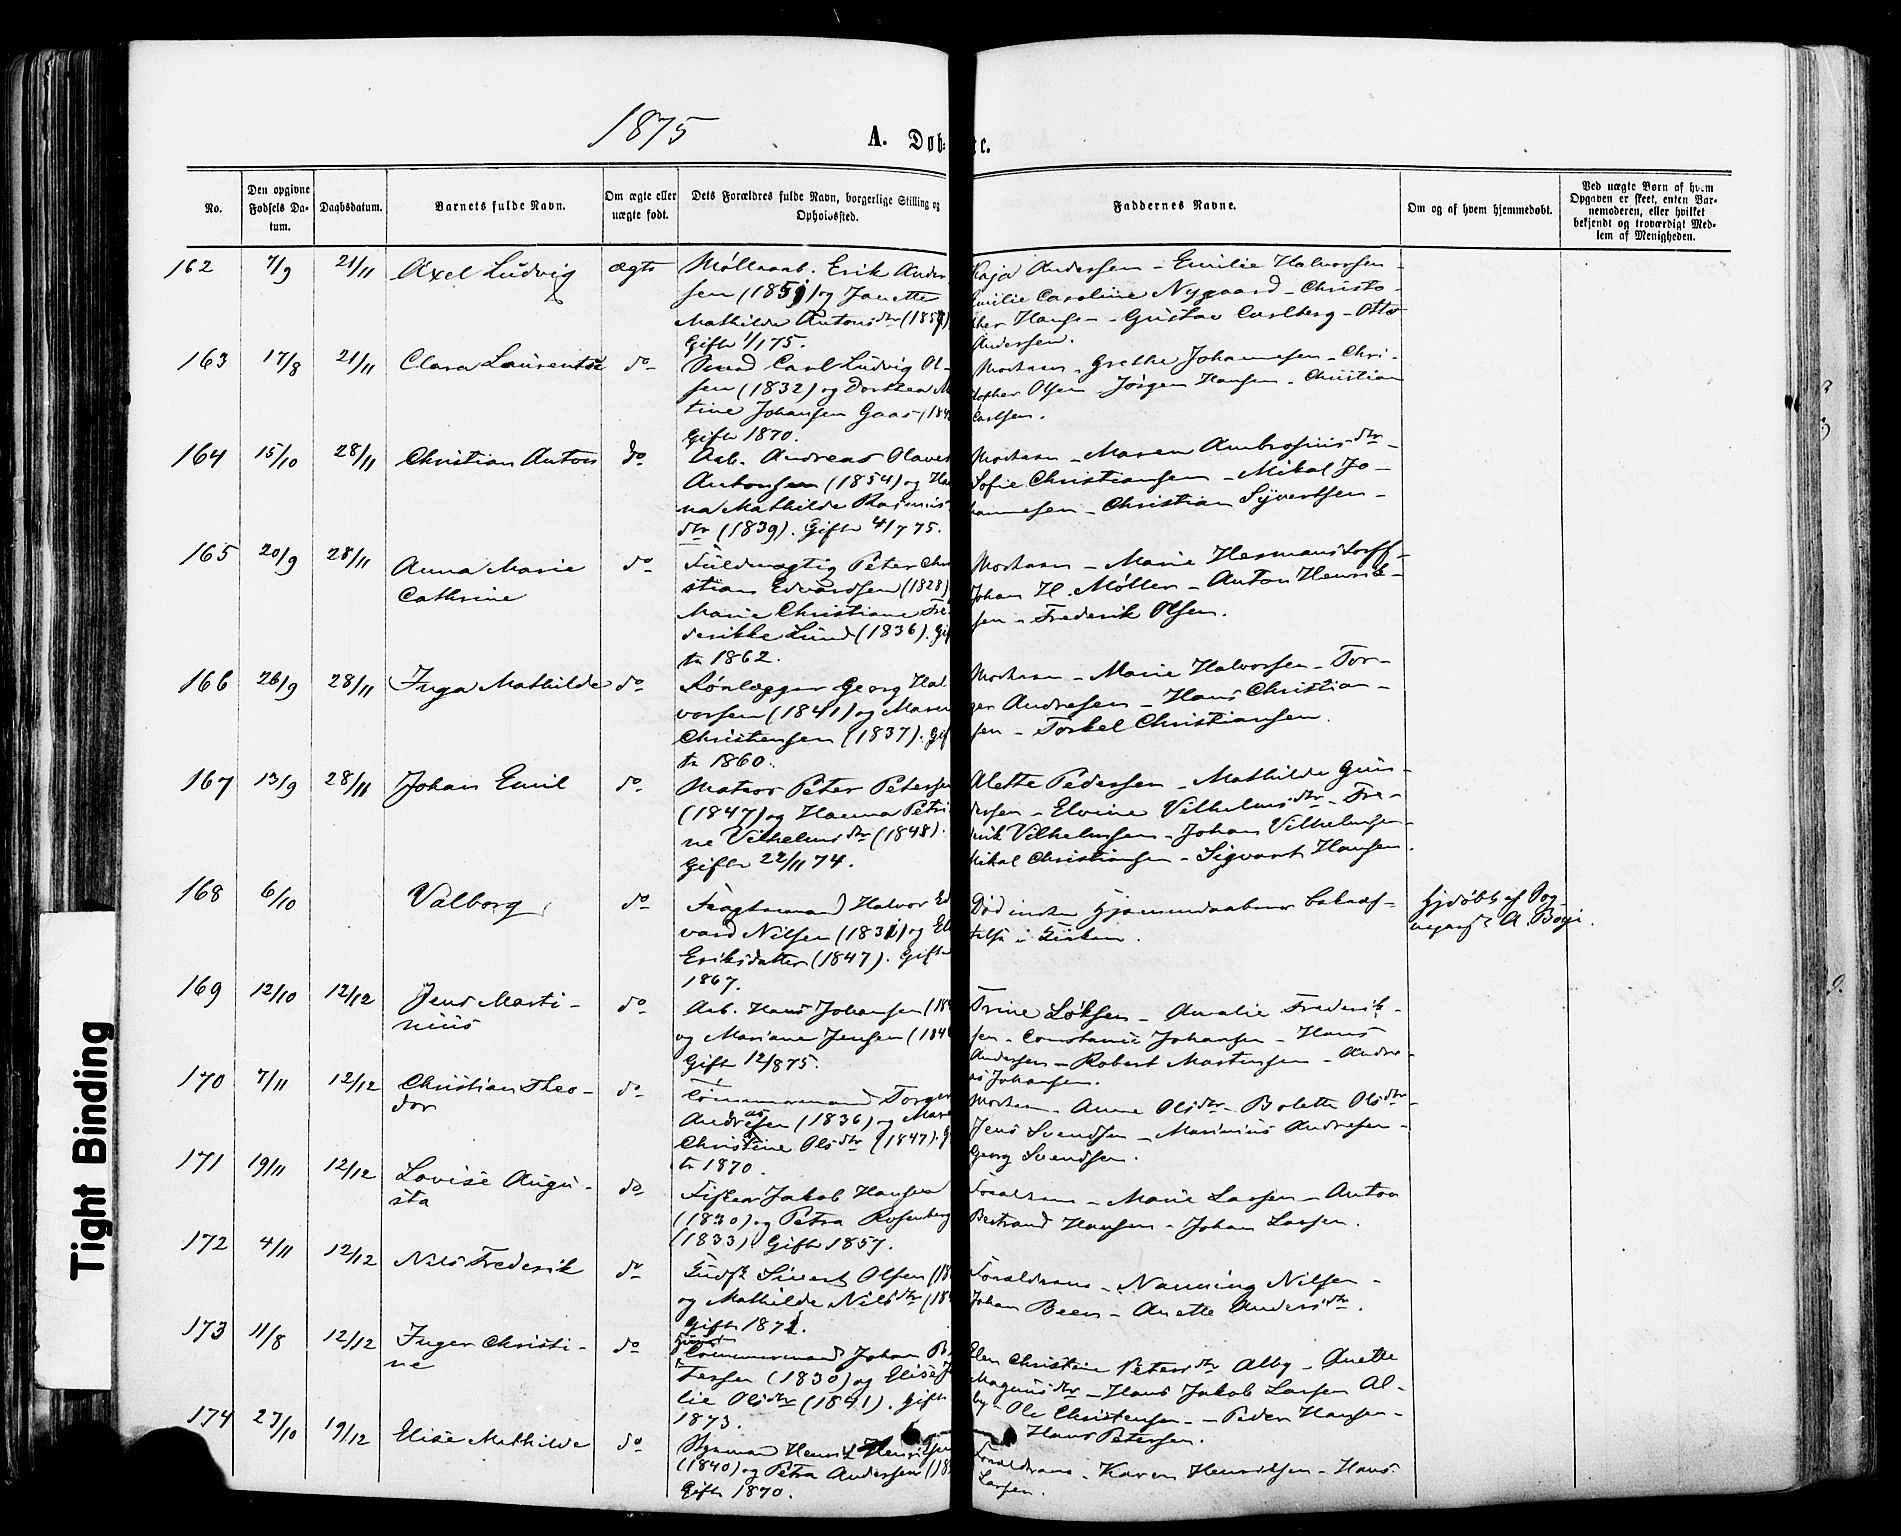 1875
A. Døb- te.
No.
Den opgivne Fødsels Da-tum.
Daabsdatum.
Barnets fulde Navn.
Om ægte eller uægte født.
Dets Forældres fulde Navn, borgerlige Stilling og Opholdssted.
Faddernes Navne.
Om og af hvem hjemmedøbt.
Ved uægte Børn af hvem Opgaven er skeet, enten Bar-nemoderen, eller hvilket bekjendt og troværdigt Med-lem af Menigheden.
162 7/9 21/11 Axel Ludvig ægte
Møllearb. Erik Ander
sen (1851) og Janette
Mathilde Antonsdtr (185
Gifte 1/1 75.
Kaja Andersen - Emilie Halvorsen -
Emilie Caroline Nygaard - Christo-
pher Hansen - Gustav Carlberg - Otto
Andersen.
163 17/8 21/11 Clara Laurentze do
Carl Ludvig Ol-
sen (1832) og Dorthea M
tine Johansen Gaas (184
Gifte 1870.
Moderen - Grethe Johannesen - Chri-
stopher Olsen - Jørgen Hansen - Christian
Carlsen.
164 15/10 28/11 Christian Anton do
Arb. Andreas Olaves
Antonsen (1854) og Han
na Mathilde Rasmus
dtr (1839). Gifte 4/7 75.
Moderen - Maren Ambrosiusdtr -
Sofie Christiansen - Mikal Jo-
hannesen - Christian Syvertsen -
165 20/9 28/11 Anna Marie
Cathrine do
Fuldmægtig Peter Chri
stian Edvardsen (1828)
Marie Christiane Fre
derikke Lund (1836). Gif
te 1862.
Moderen - Marie Hermansdorff -
Johan H. Møller - Anton Henrik-
sen - Frederik Olsen.
166 26/9 28/11 Inga Mathilde do
Rørlægger Georg Hal
vorsen (1841) og Maren
Christensen (1837). Gif
te 1860.
Moderen - Marie Halvorsen - Tor-
ger Andresen - Hans Christian-
sen - Torkel Christiansen.
167 13/9 28/11 Johan Emil do
Matros Peter Petersen
(1847) og Hanna Petri
ne Vilhelmsdtr (1848).
Gifte 22/11 74.
Alette Pedersen - Mathilde Gun-
dersen - Elvine Vilhelmsdtr - Fre-
derik Vilhelmsen - Johan Vilhelmsen -
Mikal Christiansen - Sigvart Hansen.
168 6/10 Valborg do
Fragtemand Halvor Ed
vard Nilsen (1831) og El
Eriksdatter (1847). Gifte
1867.
Død inden Hjemmedaabens Bekræf-
telse i Kirken.
Hjdøbt af
A. Boye.
169 12/10 12/12 Jens Marti-
nius do
Arb. Hans Johansen (18
og Mariane Jensen (184
Gifte 12/8 75.
Trine Løksen - Amalie Frederik-
sen - Constance Johansen - Hans
Andersen - Robert Martinsen - Andre-
as Johansen.
170 7/11 12/12 Christian Theo-
dor do
Tømmermand Torger
Andresen (1836) og Mare
Christine Olsdtr (1847). G
te 1870.
Moderen - Anne Olsdtr - Bolette Olsdtr -
Jens Svendsen - Marinius Andresen -
Georg Svendsen.
171 19/11 12/12 Lovise Augu-
sta do
Fisker Jakob Hansen
(1830) og Petra Rosenberg
(1833). Gifte 1857.
Forældrene - Marie Larsen - Anton
Bertrand Hansen - Johan Larsen.
172 4/11 12/12 Nils Frederik do
Sivert Olsen (18
og Mathilde Nilsdtr (18
Gifte 1871.
Forældrene - Nanning Nilsen -
Johan Been - Anette Andersdtr.
173 11/8 12/12 Inger Christi-
ne do
Tømmermand Johan P
tersen (1830) og Elise J
lie Olsdtr (1841). Gifte
1873.
Elen Christine Petersdtr Alby - Anette
Magnusdtr - Hans Jakob Larsen Al-
by - Ole Christensen - Peder Hansen -
Hans Petersen.
174 27/10 19/12 Elise Mathilde do
Styrmand Henrik Henriksen
(1840) og Petra Andersen (18
Gifte 1870.
Forældrene - Karen Henriksen - Hans
Larsen.
Tight Binding